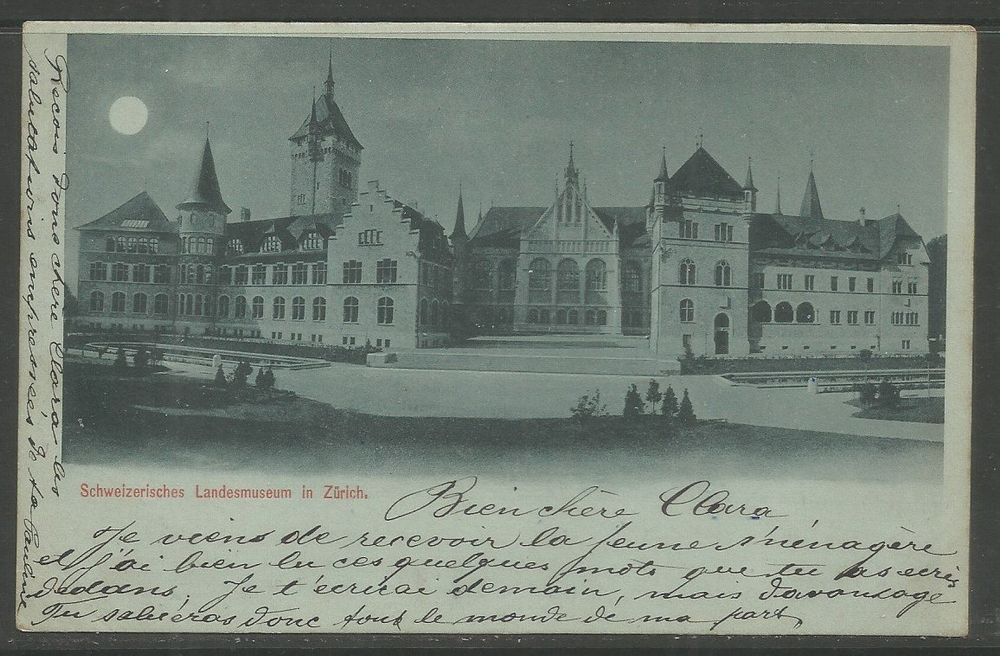 Schweizerisches Landesmuseum in Zürich.
Bien chère Clara
Je viens de recevoir la jeune ménagère
et j'ai bien lu ces quelques mots que tu as ecris
dedans, Je t'écrirai demain, mais davantage
Tu salueras donc tout le monde de ma part,
Recois donc chère Clara les
salutations empressées de ta Pauline